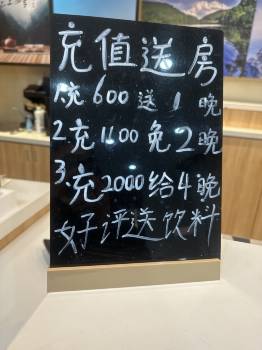 充值送房
1.充600送1晚
2.充1100免2晚
3.充2000给4晚
好评送饮料